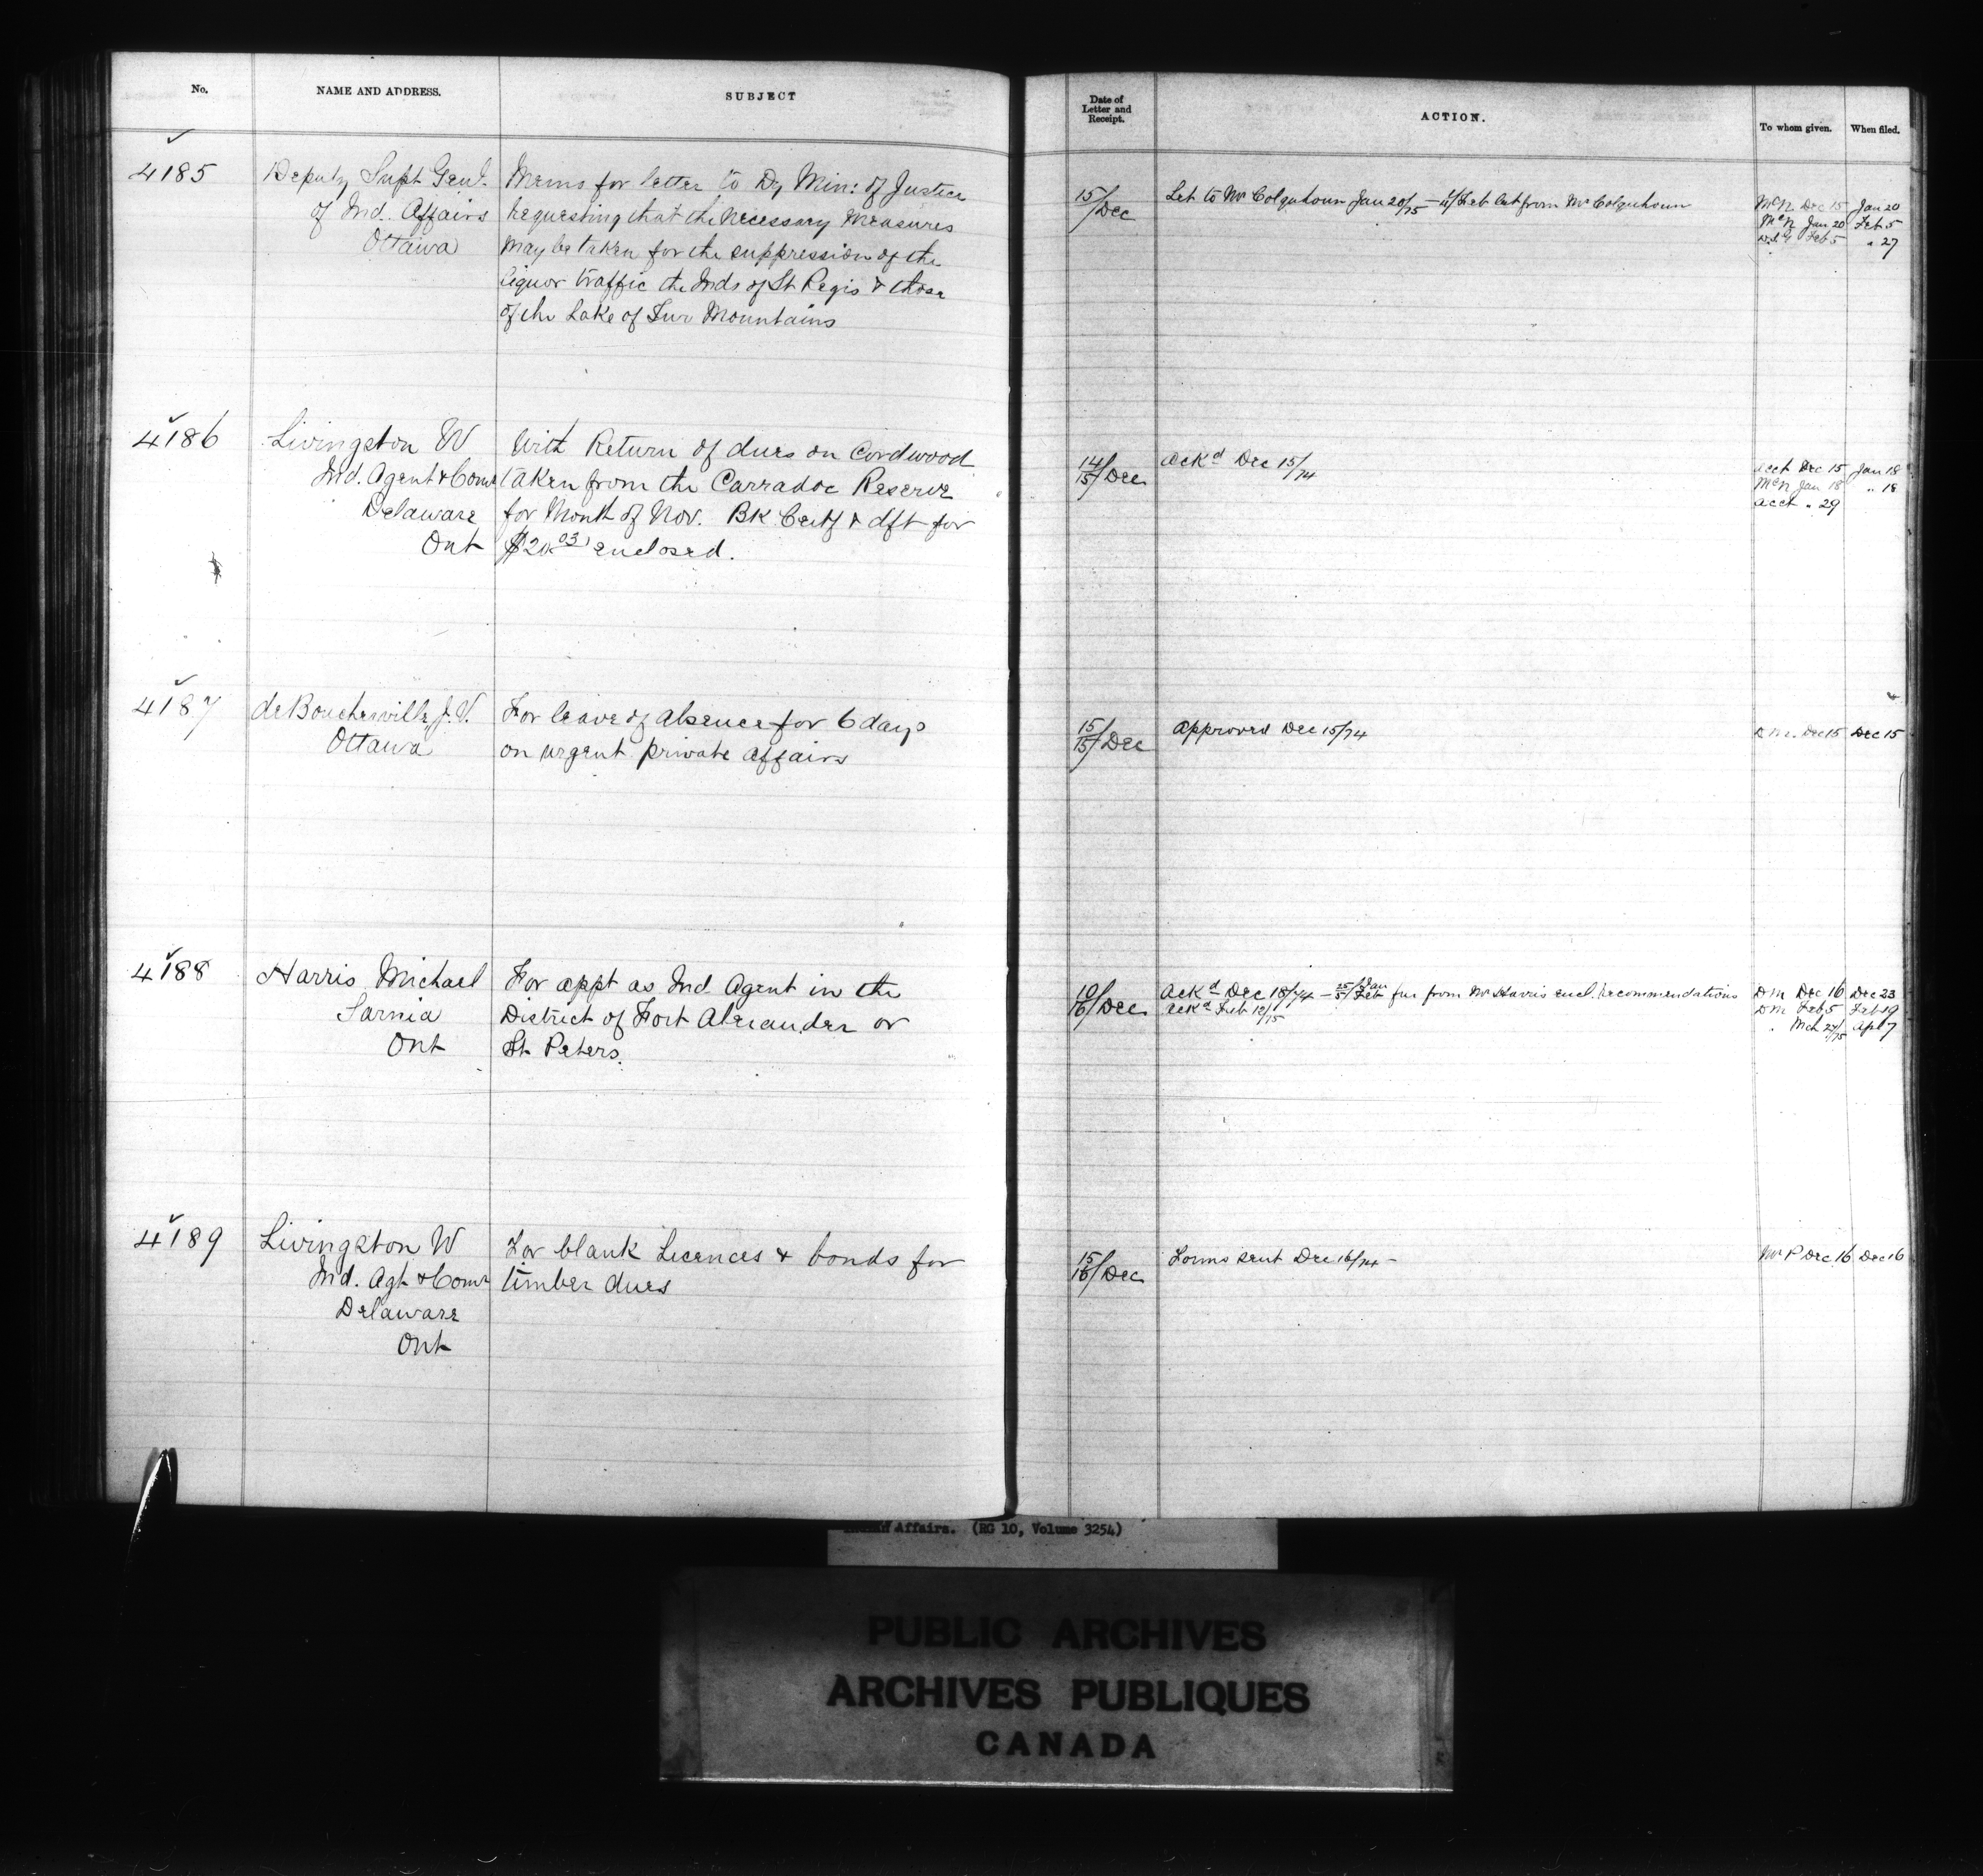 No.
NAME AND ADDRESS.
SUBJECT
Date of
Letter and
Receipt.
ACTION.
To whom given.
When filed.
4185
Deputy Supt Genl.
of Ind. Affairs
Ottawa
Memo for letter to Dy Min: of Justice
requesting that the necessary measures
may be taken for the suppression of the
liquor traffic the Inds of St Regis & those
of the Lake of Two Mountains
15/Dec
Let to Mr Colquhoun Jan 20/75 — 4/Feb Let from Mr Colquhoun
McN Dec 15 Jan 20
McN Jan 20 Feb 5
D.S.G Feb 5 " 27
4186
Livingston W
Ind. Agent & Comr
Delaware
Ont
With Return of dues on Cordwood
taken from the Carradoc Reserve
for Month of Nov. Bk Certf & dft for
$20.03 enclosed.
14/15/Dec
Ackd Dec 15/74
Acct Dec 15 Jan 18
McN Jan 18 " 18
Acct " 29
4187
deBoucherville J. V.
Ottawa
For leave of absence for 6 days
on urgent private affairs
15/15/Dec
Approved Dec 15/74
D.M. Dec 15 Dec 15
4188
Harris Michael
Sarnia
Ont
For appt as Ind Agent in the
District of Fort Alexander or
St. Peters.
10/16/Dec
Ackd Dec 18/74 — 25/Jan 5/Feb fur from Mr Harris encl. recommendations
Ackd Feb 12/75
DM Dec 16 Dec 23
DM Feb 5 Feb 19
" Mch 24/75 Apl 7
4189
Livingston W
Ind. Agt & Comr
Delaware
Ont
For blank Licences & bonds for
timber dues
15/16/Dec
Forms sent Dec 16/74 —
Mr P Dec 16 Dec 16
Indian Affairs. (RG 10, Volume 3254)
PUBLIC ARCHIVES
ARCHIVES PUBLIQUES
CANADA